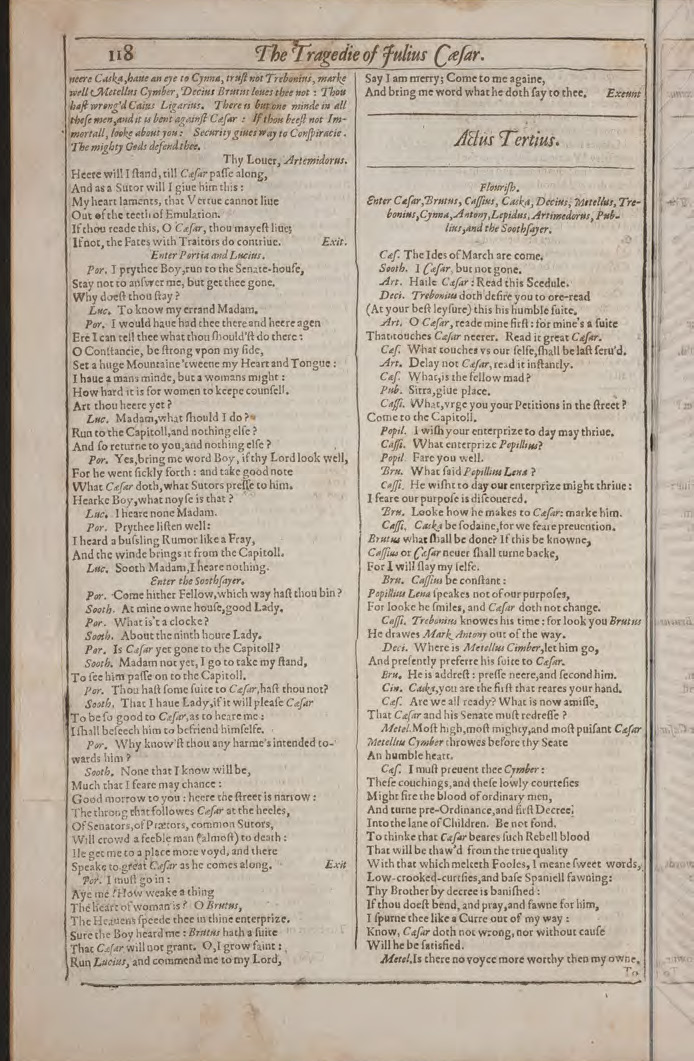 118
The Tragedie of Julius Cæsar.
neere Caska, haue an eye to Cynna, trust not Trebonius, marke
well Metellus Cymber, Decius Brutus loues thee not: Thou
hast wrong'd Caius Ligarius. There is but one minde in all
these men, and it is bent against Cæsar: If thou beest not Im-
mortall, looke about you: Security giues way to Conspiracie.
The mighty Gods defend thee.
Thy Louer, Artemidorus.
Heere will I stand, till Cæsar passe along,
And as a Sutor will I giue him this:
My heart laments, that Vertue cannot liue
Out of the teeth of Emulation.
If thou reade this, O Cæsar, thou mayest liue;
If not, the Fates with Traitors do contriue. Exit.
Enter Portia and Lucius.
Por. I prythee Boy, run to the Senate-house,
Stay not to answer me, but get thee gone.
Why doest thou stay?
Luc. To know my errand Madam.
Por. I would haue had thee there and heere agen
Ere I can tell thee what thou should'st do there:
O Constancie, be strong vpon my side,
Set a huge Mountaine 'tweene my Heart and Tongue:
I haue a mans minde, but a womans might:
How hard it is for women to keepe counsell.
Art thou heere yet?
Luc. Madam, what should I do?
Run to the Capitoll, and nothing else?
And so returne to you, and nothing else?
Por. Yes, bring me word Boy, if thy Lord look well,
For he went sickly forth: and take good note
What Cæsar doth, what Sutors presse to him.
Hearke Boy, what noyse is that?
Luc. I heare none Madam.
Por. Prythee listen well:
I heard a bussling Rumor like a Fray,
And the winde brings it from the Capitoll.
Luc. Sooth Madam, I heare nothing.
Enter the Soothsayer.
Por. Come hither Fellow, which way hast thou bin?
Sooth. At mine owne house, good Lady.
Por. What is't a clocke?
Sooth. About the ninth houre Lady.
Por. Is Cæsar yet gone to the Capitoll?
Sooth. Madam not yet, I go to take my stand,
To see him passe on to the Capitoll.
Por. Thou hast some suite to Cæsar, hast thou not?
Sooth. That I haue Lady, if it will please Cæsar
To be so good to Cæsar, as to heare me:
I shall beseech him to befriend himselfe.
Por. Why know'st thou any harme's intended to-
wards him?
Sooth. None that I know will be,
Much that I feare may chance:
Good morrow to you: heere the street is narrow:
The throng that followes Cæsar at the heeles,
Of Senators, of Prætors, common Sutors,
Will crowd a feeble man (almost) to death:
Ile get me to a place more voyd, and there
Speake to great Cæsar as he comes along. Exit
Por. I must go in:
Aye me! How weake a thing
The heart of woman is? O Brutus,
The Heauens speede thee in thine enterprize.
Sure the Boy heard me: Brutus hath a suite
That Cæsar will not grant. O, I grow faint:
Run Lucius, and commend me to my Lord,
Say I am merry; Come to me againe,
And bring me word what he doth say to thee. Exeunt
Actus Tertius.
Flourish.
Enter Cæsar, Brutus, Cassius, Caska, Decius, Metellus, Tre-
bonius, Cynna, Antony, Lepidus, Artimedorus, Pub-
lius, and the Soothsayer.
Cæs. The Ides of March are come.
Sooth. I Cæsar, but not gone.
Art. Haile Cæsar: Read this Scedule.
Deci. Trebonius doth desire you to ore-read
(At your best leysure) this his humble suite.
Art. O Cæsar, reade mine first: for mine's a suite
That touches Cæsar neerer. Read it great Cæsar.
Cæs. What touches vs our selfe, shall be last seru'd.
Art. Delay not Cæsar, read it instantly.
Cæs. What, is the fellow mad?
Pub. Sirra, giue place.
Cassi. What, vrge you your Petitions in the street?
Come to the Capitoll.
Popil. I wish your enterprize to day may thriue.
Cassi. What enterprize Popillius?
Popil. Fare you well.
Bru. What said Popillius Lena?
Cassi. He wisht to day our enterprize might thriue:
I feare our purpose is discouered.
Bru. Looke how he makes to Cæsar: marke him.
Cassi. Caska be sodaine, for we feare preuention.
Brutus what shall be done? If this be knowne,
Cassius or Cæsar neuer shall turne backe,
For I will slay my selfe.
Bru. Cassius be constant:
Popillius Lena speakes not of our purposes,
For looke he smiles, and Cæsar doth not change.
Cassi. Trebonius knowes his time: for look you Brutus
He drawes Mark Antony out of the way.
Deci. Where is Metellus Cimber, let him go,
And presently preferre his suite to Cæsar.
Bru. He is addrest: presse neere, and second him.
Cin. Caska, you are the first that reares your hand.
Cæs. Are we all ready? What is now amisse,
That Cæsar and his Senate must redresse?
Metel. Most high, most mighty, and most puisant Cæsar
Metellus Cymber throwes before thy Seate
An humble heart.
Cæs. I must preuent thee Cymber:
These couchings, and these lowly courtesies
Might fire the blood of ordinary men,
And turne pre-Ordinance, and first Decree
Into the lane of Children. Be not fond,
To thinke that Cæsar beares such Rebell blood
That will be thaw'd from the true quality
With that which melteth Fooles, I meane sweet words,
Low-crooked-curtsies, and base Spaniell fawning:
Thy Brother by decree is banished:
If thou doest bend, and pray, and fawne for him,
I spurne thee like a Curre out of my way:
Know, Cæsar doth not wrong, nor without cause
Will he be satisfied.
Metel. Is there no voyce more worthy then my owne,
To